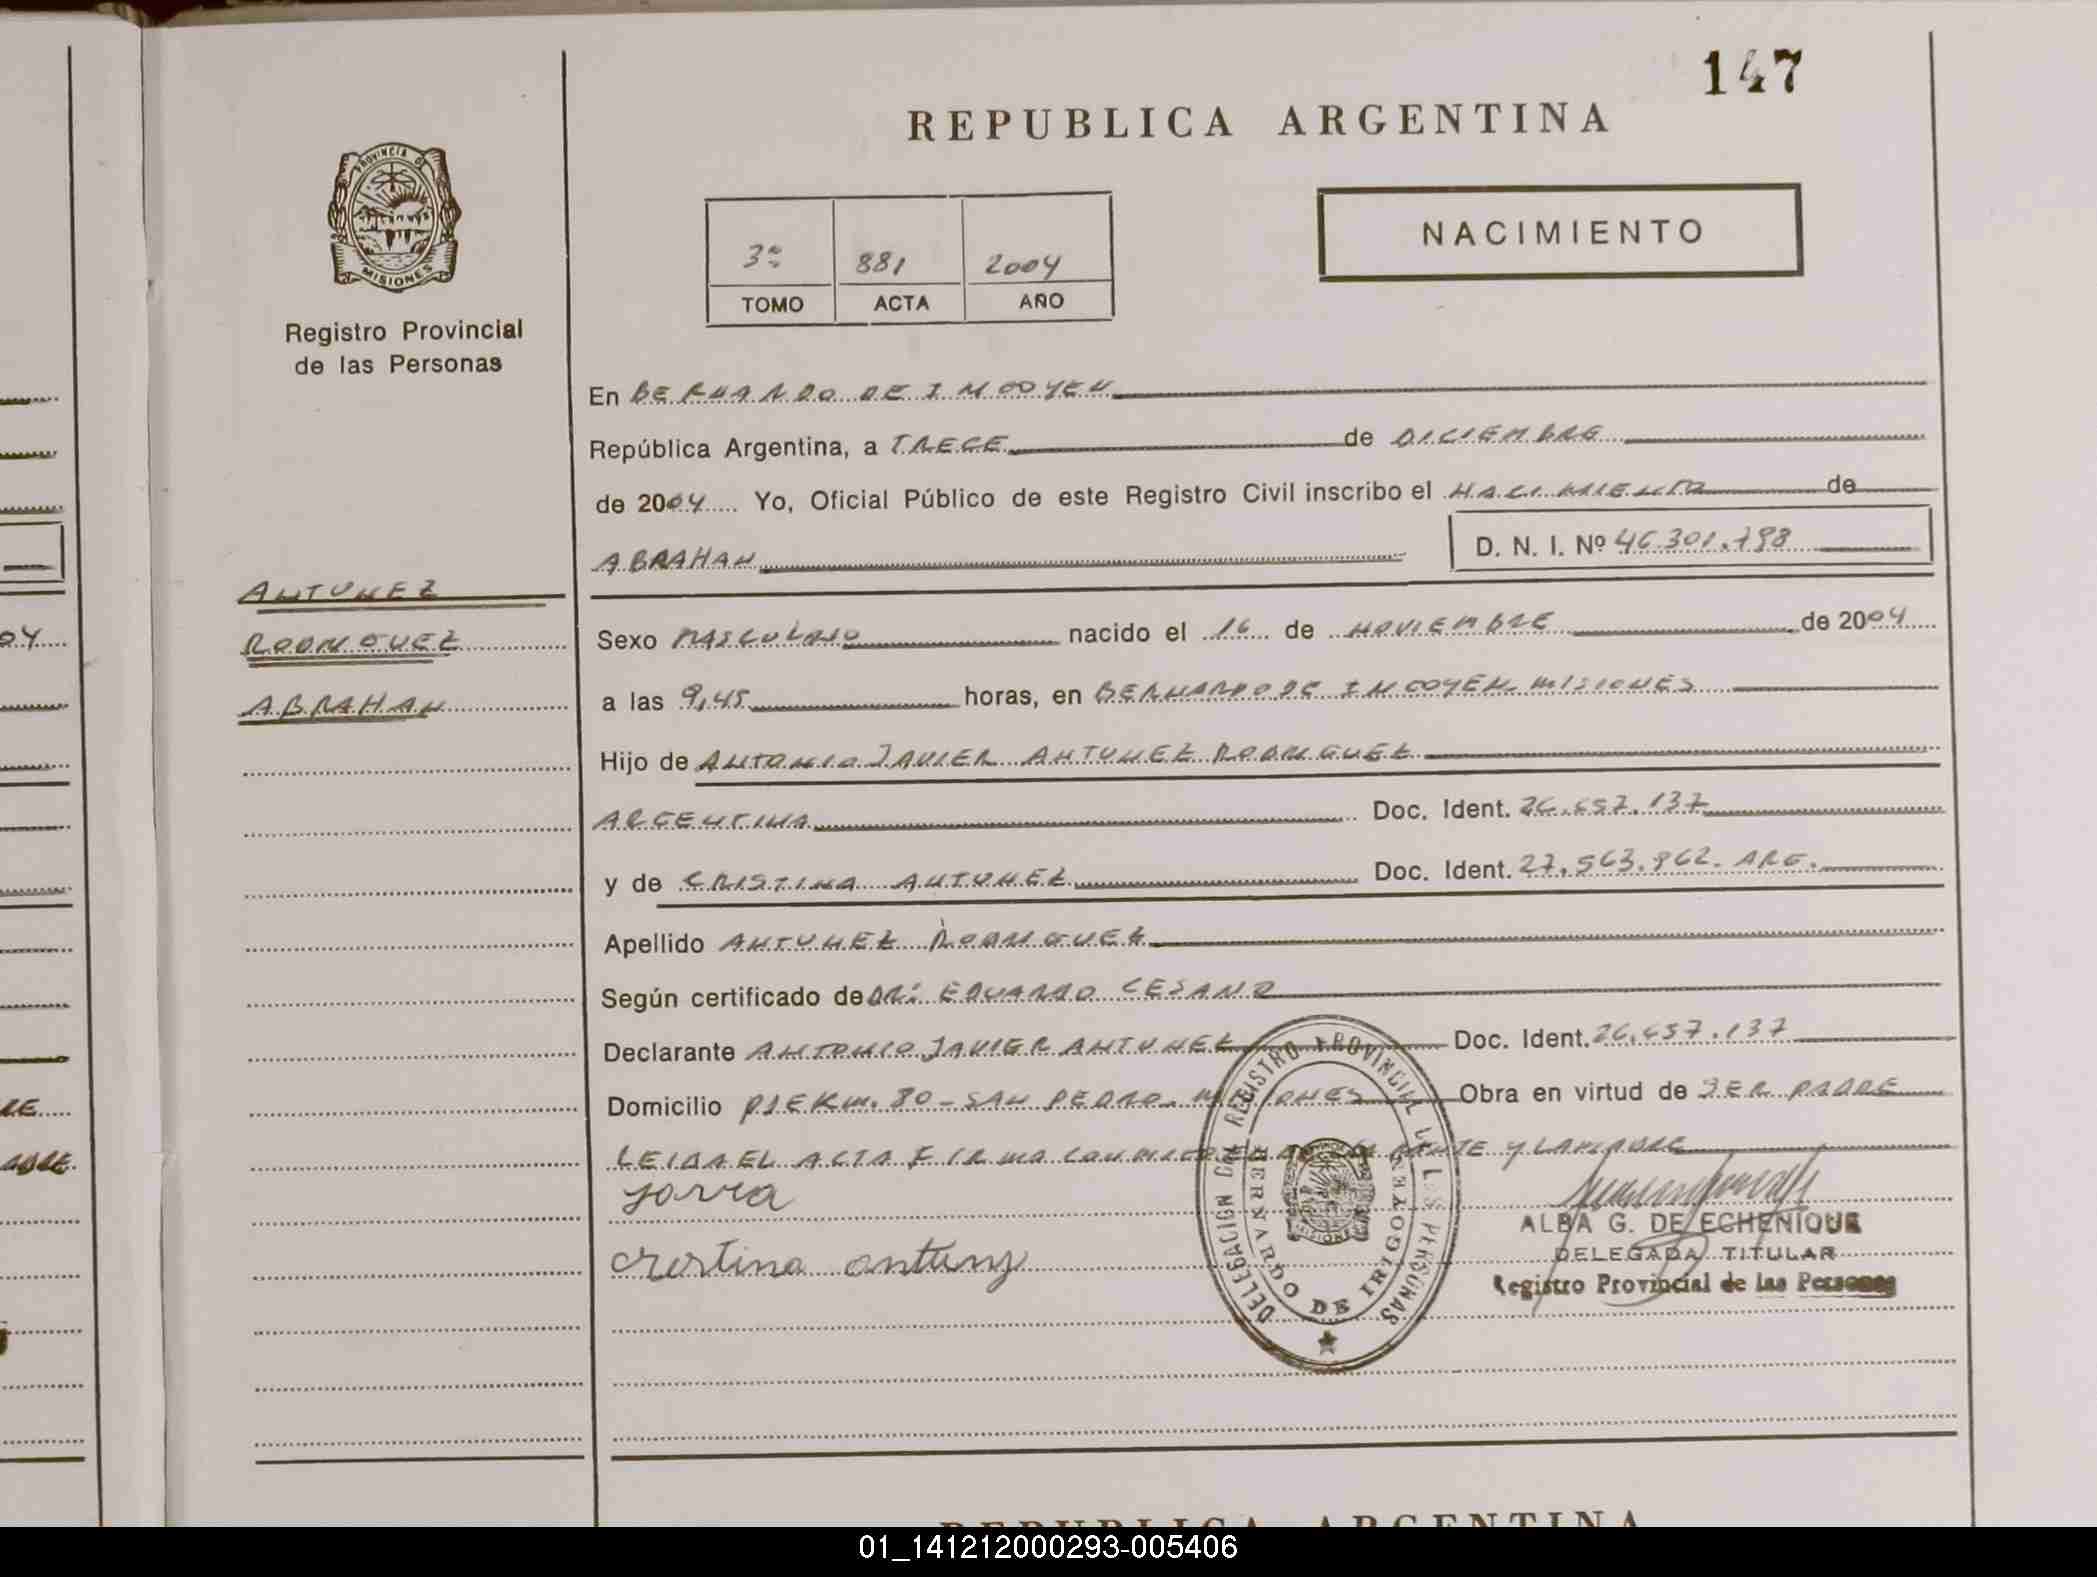 147
REPUBLICA ARGENTINA
PROVINCIA DE
MISIONES
Registro Provincial
de las Personas
3º 881 2004
TOMO ACTA AÑO
NACIMIENTO
En BERNARDO DE IRIGOYEN
República Argentina, a TRECE de DICIEMBRE
de 2004 Yo, Oficial Público de este Registro Civil inscribo el NACIMIENTO de
ABRAHAN D. N. I. Nº 46.301.798
ANTUNEZ
RODRIGUEZ
ABRAHAN
Sexo MASCULINO nacido el 16 de NOVIEMBRE de 2004
a las 9,45 horas, en BERNARDO DE IRIGOYEN. MISIONES
Hijo de ANTONIO JAVIER ANTUNEZ RODRIGUEZ
ARGENTINA Doc. Ident. 26.657.137
y de CRISTINA ANTUNEZ Doc. Ident. 27.563.862. ARG.
Apellido ANTUNEZ RODRIGUEZ
Según certificado de DR: EDUARDO CESANO
Declarante ANTONIO JAVIER ANTUNEZ Doc. Ident. 26.657.137
Domicilio PJE KM. 80 - SAN PEDRO. MISIONES Obra en virtud de SER PADRE
LEIDA EL ACTA FIRMA CONMIGO Y LA MADRE
cristina antunez
DELEGACION DEL REGISTRO PROVINCIAL DE LAS PERSONAS
BERNARDO DE IRIGOYEN
MISIONES
ALBA G. DE ECHENIQUE
DELEGADA TITULAR
Registro Provincial de las Personas
REPUBLICA ARGENTINA
01_141212000293-005406